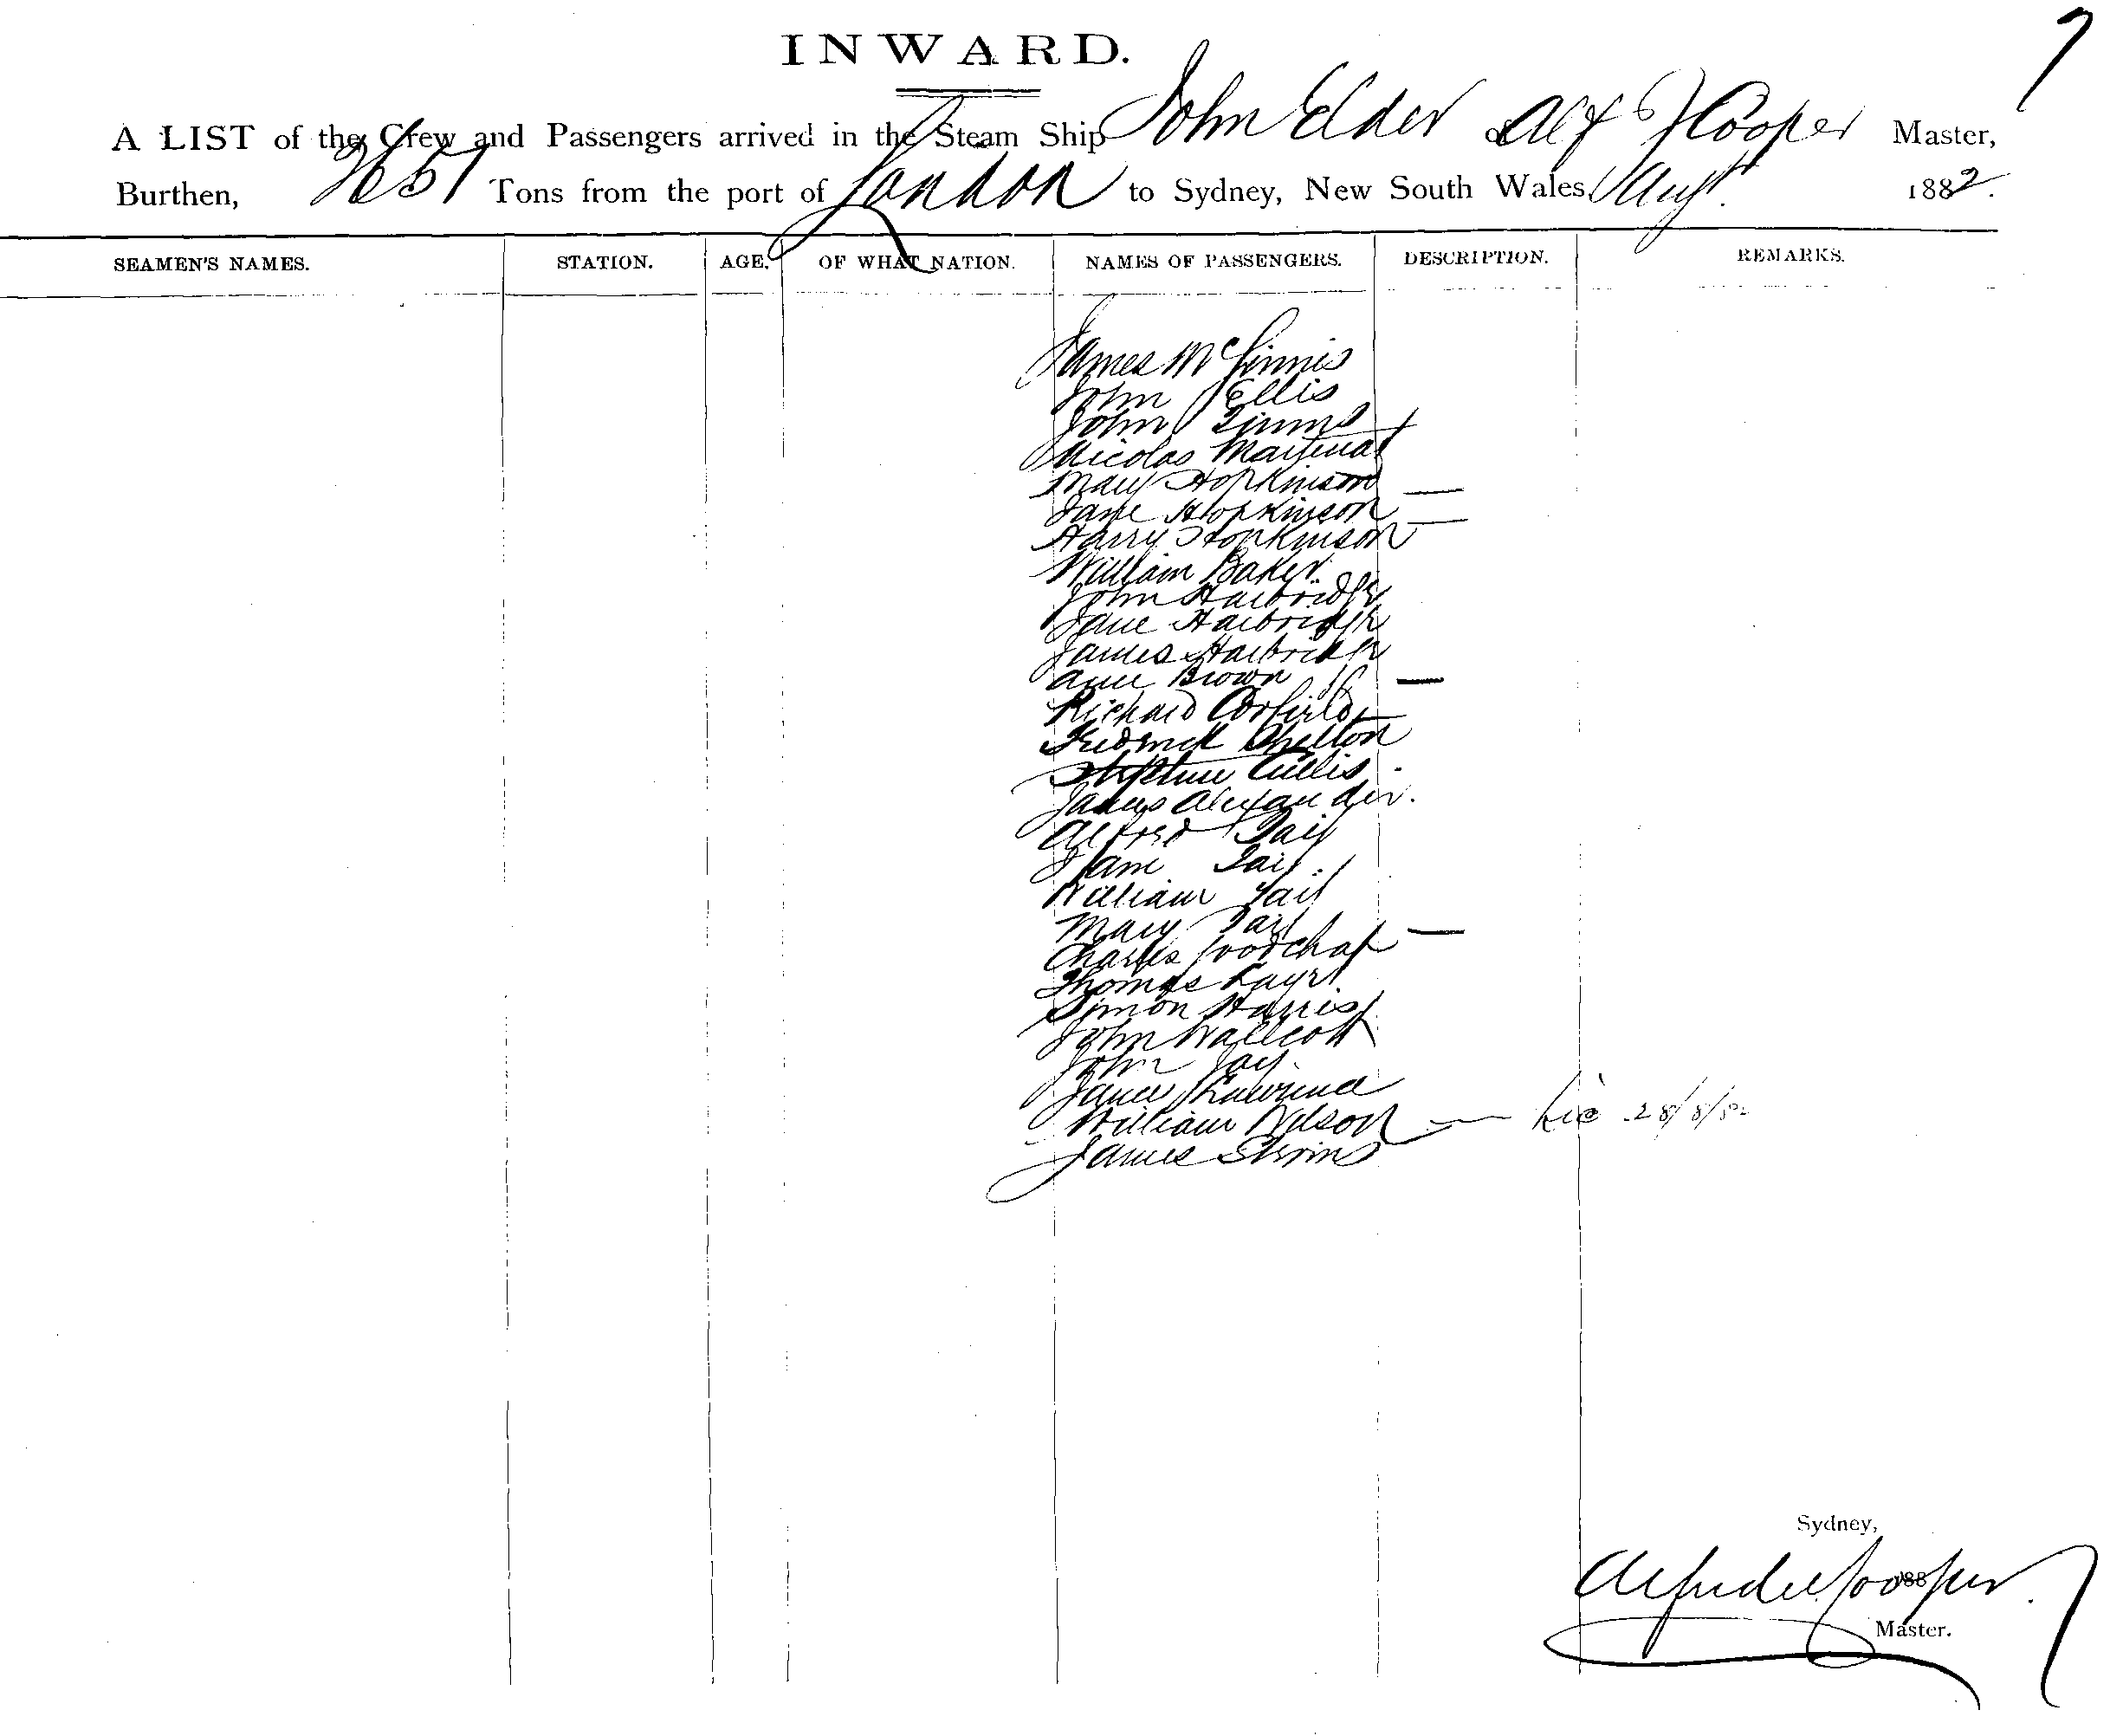 7
INWARD.
A LIST of the Crew and Passengers arrived in the Steam Ship John Elder of Alf Cooper Master,
Burthen, Tons from the port of London to Sydney, New South Wales, Augt 1882.
SEAMEN'S NAMES. STATION. AGE. OF WHAT NATION. NAMES OF PASSENGERS. DESCRIPTION. REMARKS.
James McGinnis
John Ellis
John Timms
Nicolas
Mary Hopkinson
Jane Hopkinson
Harry Hopkinson
William Baker
John Harbridge
Jane Harbridge
James Harbridge
Anne Brown
Richard Corfield
Frederick Shelton
Cullis
James Alexander
Alfred Tait
Jane Tait
William Tait
Mary Tait
Charles Woodchap
Thomas
Simon Harris
John Wallcott
John Jay
Lawrence
William Wilson 28/8/82
James
Sydney,
188
Alfred Cooper
Master.